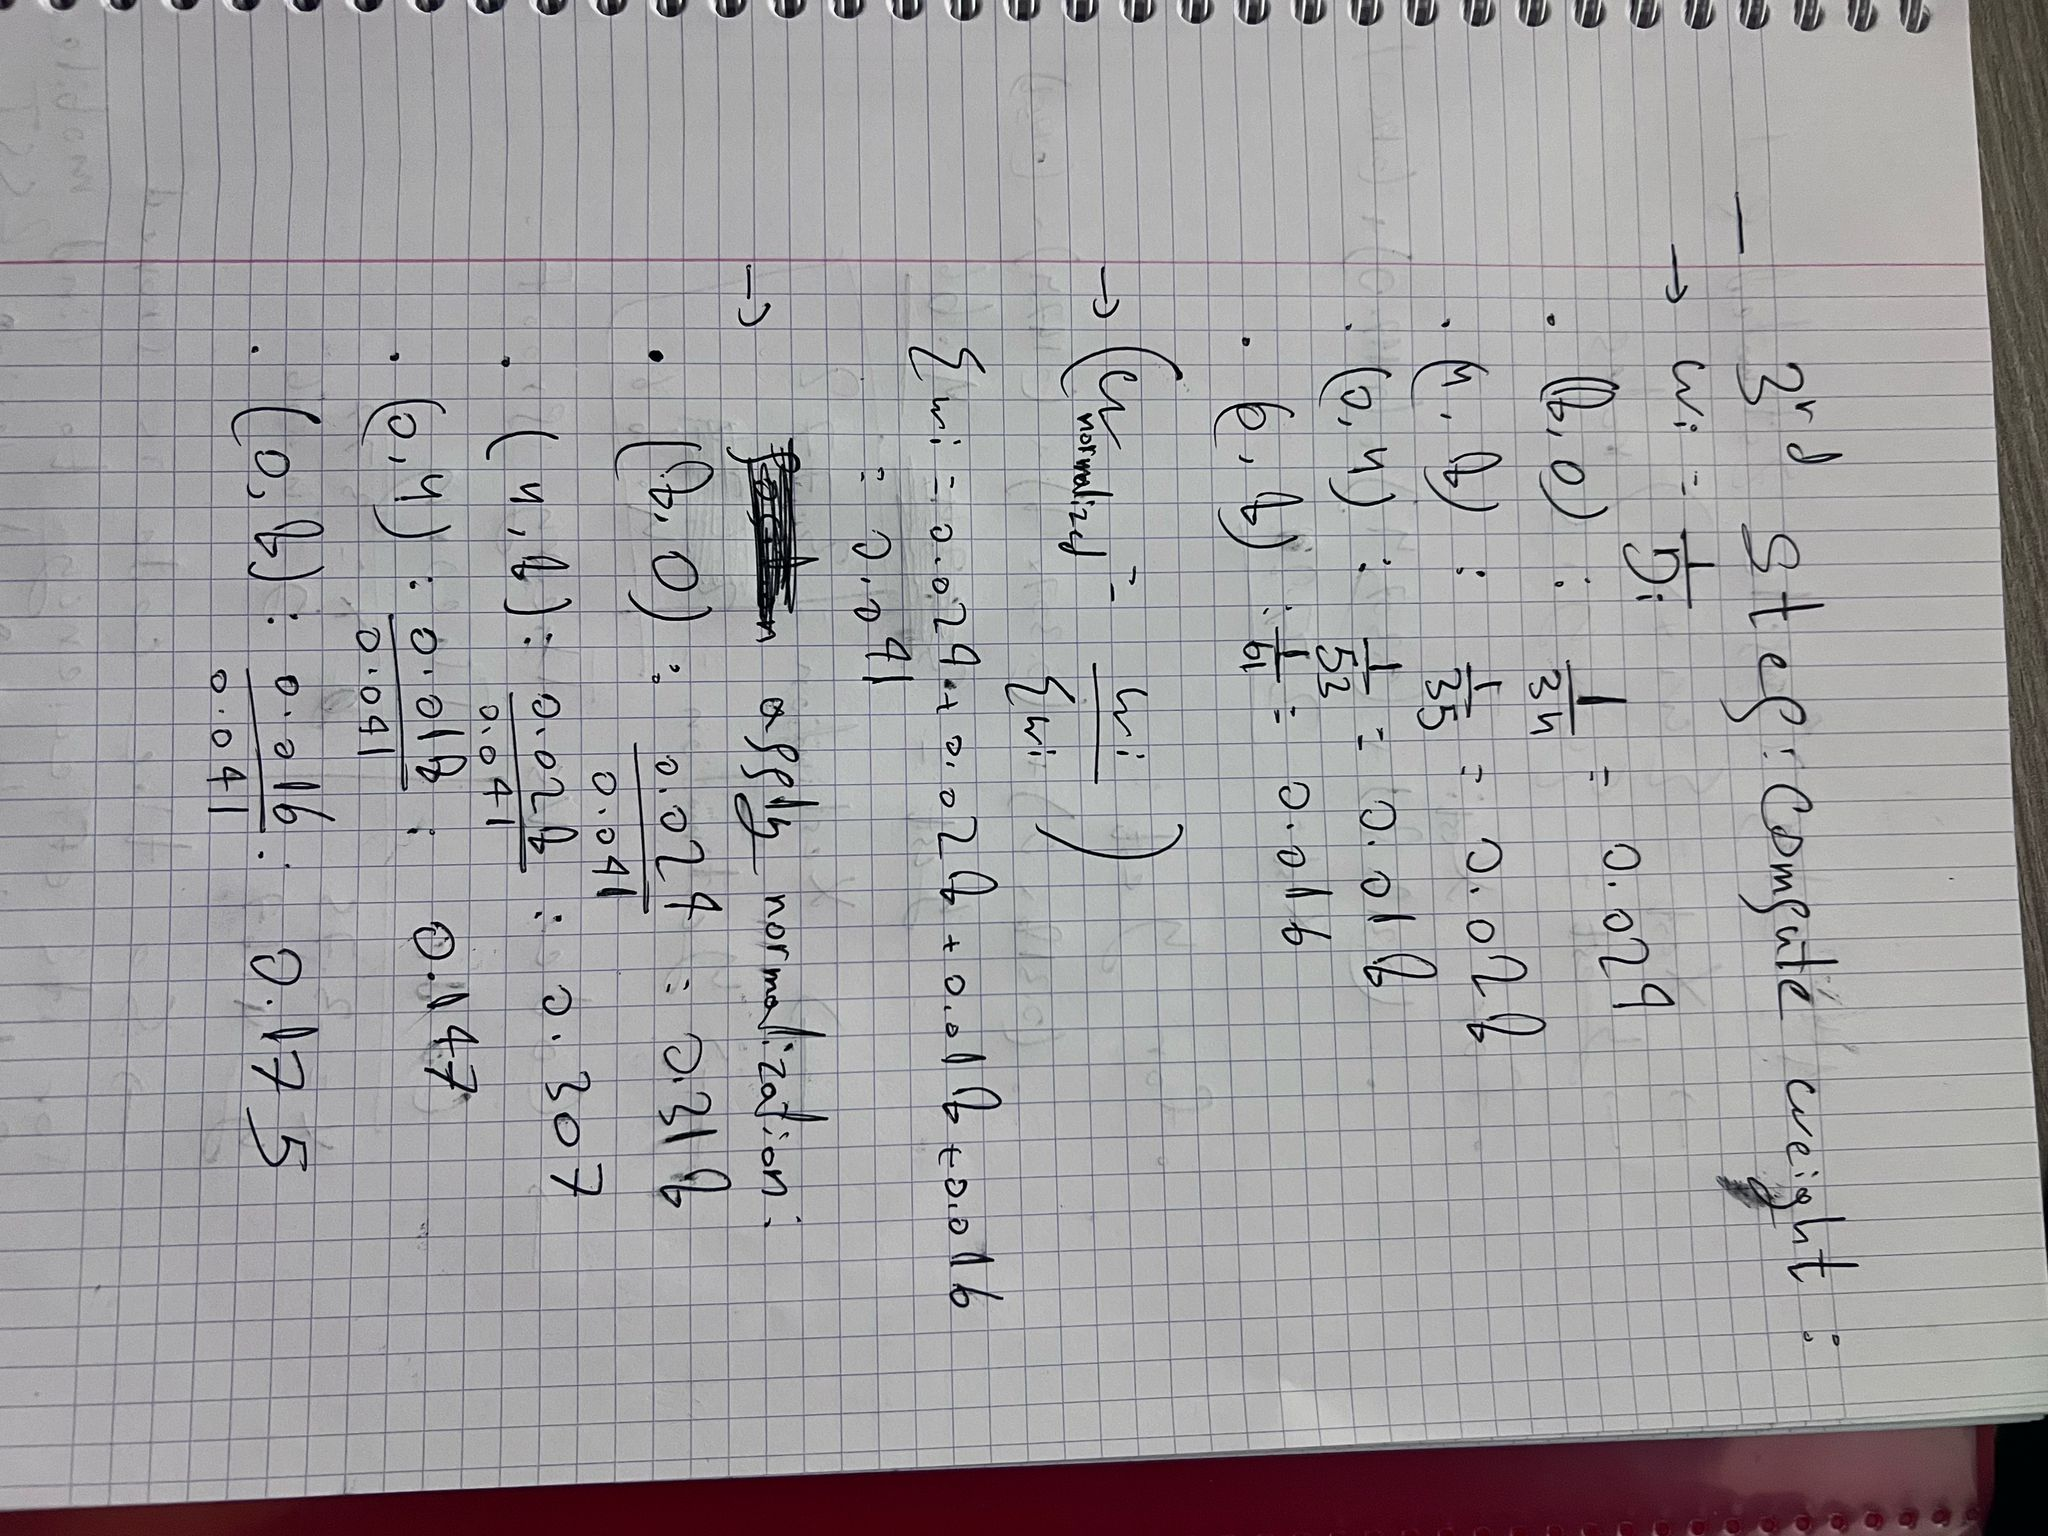 - 3rd Step: Compute weight :
→ wi = 1/Di
• (8,0) : 1/34 = 0.029
• (4,8) : 1/35 = 0.028
• (0,4) : 1/53 = 0.018
• (6,8) : 1/61 = 0.016
→ (w normalized = wi/∑wi)
∑wi = 0.029 + 0.028 + 0.018 + 0.016
= 0.091
→ apply normalization :
• (8,0) : 0.029/0.091 = 0.318
• (4,8) : 0.028/0.091 : 0.307
• (0,4) : 0.018/0.091 : 0.197
• (0,8) : 0.016/0.091 : 0.175